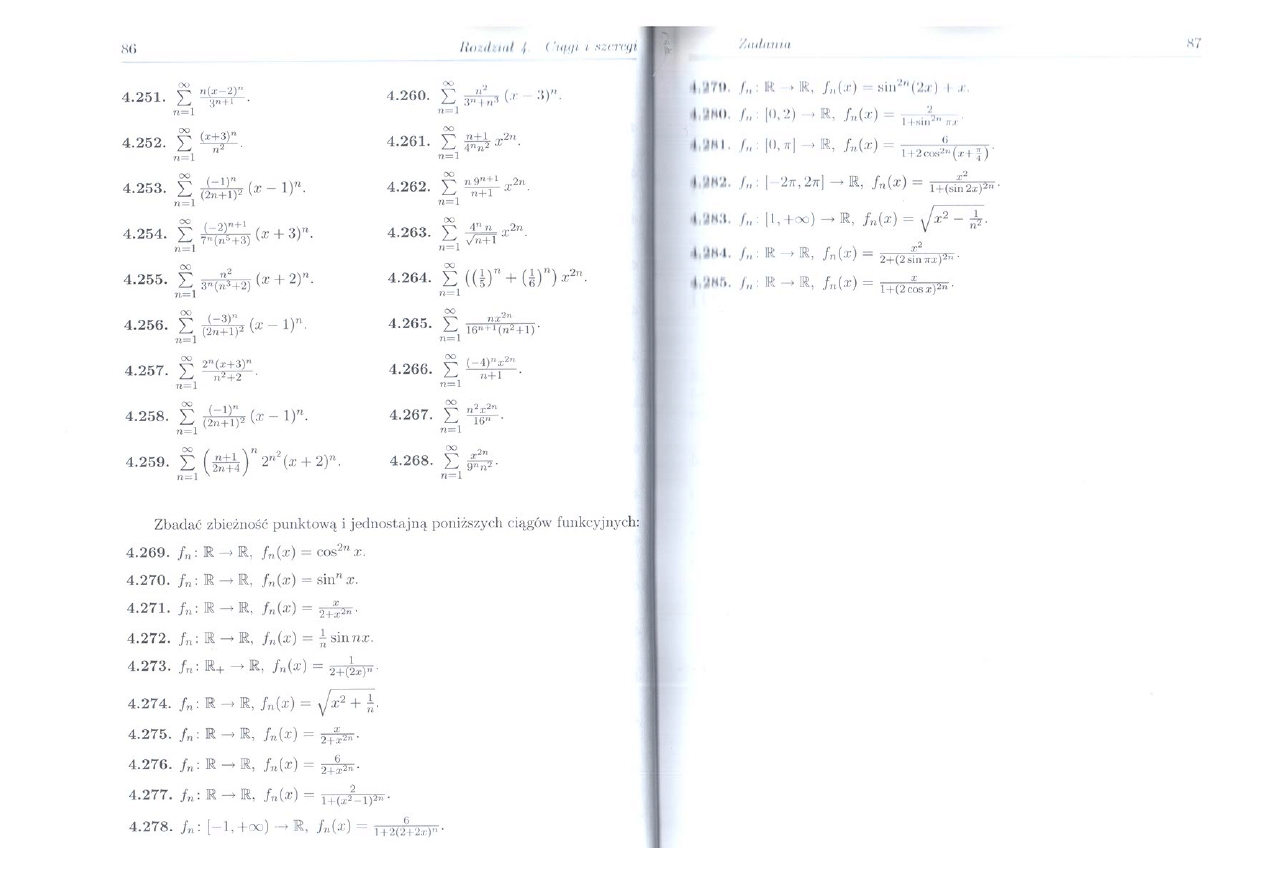 86 Rozdział 4. Ciągi i szeregi
4.251. ∑_{n=1}^{∞} n(x−2)^n / 3^{n+1}.
4.252. ∑_{n=1}^{∞} (x+3)^n / n^2.
4.253. ∑_{n=1}^{∞} (−1)^n / (2n+1)^2 (x − 1)^n.
4.254. ∑_{n=1}^{∞} (−2)^{n+1} / 7^n(n^5+3) (x + 3)^n.
4.255. ∑_{n=1}^{∞} n^2 / 3^n(n^3+2) (x + 2)^n.
4.256. ∑_{n=1}^{∞} (−3)^n / (2n+1)^2 (x − 1)^n.
4.257. ∑_{n=1}^{∞} 2^n(x+3)^n / n^2+2.
4.258. ∑_{n=1}^{∞} (−1)^n / (2n+1)^2 (x − 1)^n.
4.259. ∑_{n=1}^{∞} (n+1 / 2n+4)^n 2^{n^2}(x + 2)^n.
4.260. ∑_{n=1}^{∞} n^2 / 3^n+n^3 (x − 3)^n.
4.261. ∑_{n=1}^{∞} n+1 / 4^n n^2 x^{2n}.
4.262. ∑_{n=1}^{∞} n 9^{n+1} / n+1 x^{2n}.
4.263. ∑_{n=1}^{∞} 4^n n / √n+1 x^{2n}.
4.264. ∑_{n=1}^{∞} ((1/5)^n + (1/6)^n) x^{2n}.
4.265. ∑_{n=1}^{∞} nx^{2n} / 16^{n+1}(n^2+1).
4.266. ∑_{n=1}^{∞} (−4)^n x^{2n} / n+1.
4.267. ∑_{n=1}^{∞} n^2 x^{2n} / 16^n.
4.268. ∑_{n=1}^{∞} x^{2n} / 9^n n^2.
Zbadać zbieżność punktową i jednostajną poniższych ciągów funkcyjnych:
4.269. f_n: ℝ → ℝ, f_n(x) = cos^{2n} x.
4.270. f_n: ℝ → ℝ, f_n(x) = sin^n x.
4.271. f_n: ℝ → ℝ, f_n(x) = x / 2+x^{2n}.
4.272. f_n: ℝ → ℝ, f_n(x) = 1/n sin nx.
4.273. f_n: ℝ₊ → ℝ, f_n(x) = 1 / 2+(2x)^n.
4.274. f_n: ℝ → ℝ, f_n(x) = √(x^2 + 1/n).
4.275. f_n: ℝ → ℝ, f_n(x) = x / 2+x^{2n}.
4.276. f_n: ℝ → ℝ, f_n(x) = 6 / 2+x^{2n}.
4.277. f_n: ℝ → ℝ, f_n(x) = 2 / 1+(x^2−1)^{2n}.
4.278. f_n: [−1, +∞) → ℝ, f_n(x) = 6 / 1+2(2+2x)^n.
Zadania 87
4.279. f_n: ℝ → ℝ, f_n(x) = sin^{2n}(2x) + x.
4.280. f_n: [0, 2) → ℝ, f_n(x) = 2 / 1+sin^{2n} πx.
4.281. f_n: [0, π] → ℝ, f_n(x) = 6 / 1+2 cos^{2n}(x+π/4).
4.282. f_n: [−2π, 2π] → ℝ, f_n(x) = x^2 / 1+(sin 2x)^{2n}.
4.283. f_n: [1, +∞) → ℝ, f_n(x) = √(x^2 − 1/n^2).
4.284. f_n: ℝ → ℝ, f_n(x) = x^2 / 2+(2 sin πx)^{2n}.
4.285. f_n: ℝ → ℝ, f_n(x) = x / 1+(2 cos x)^{2n}.